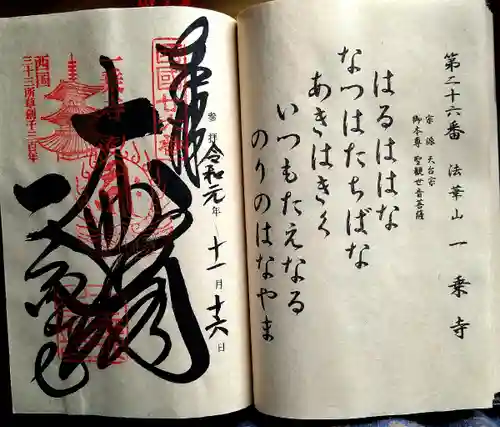 第二十六番 法華山 一乗寺
宗派 天台宗
御本尊 聖観世音菩薩
はるははな
なつはたちばな
あきはきく
いつもたえなる
のりのはなやま
奉拝
参拝 令和元年 十一月 十六日
西国
三十三所草創千三百年
一乗寺